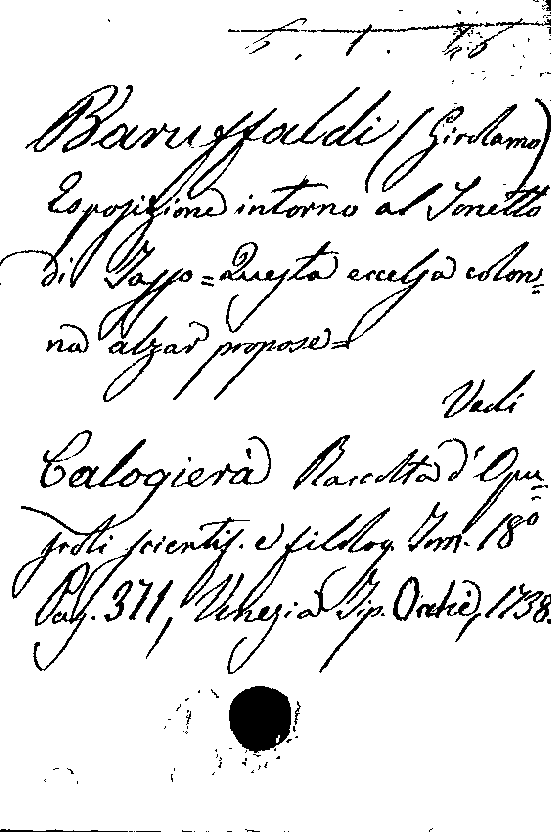 6. 1. 46
Baruffaldi (Girolamo)
Esposizione intorno al Sonetto
di Tasso = Questa eccelsa colon=
na alzar propose =
Vedi
Calogierà Raccolta d'Opu=
scoli scientif. e filolog. Tom. 18º
Pag. 371, Venezia Tip. Occhi, 1738.